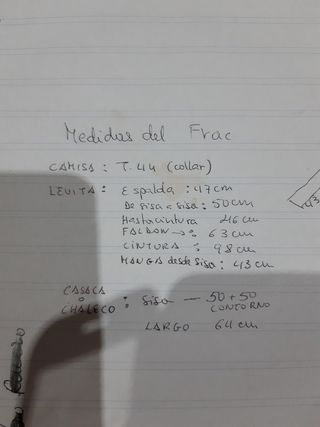 Medidas del Frac
CAMISA: T.44 (collar)
LEVITA: Espalda: 47cm
De sisa a sisa: 50cm
Hasta cintura 46 cm
FALDON →: 63cm
CINTURA: 98cm
MANGA desde sisa: 43 cm
CASACA
o
CHALECO: Sisa — 50+50
CONTORNO
LARGO 64cm